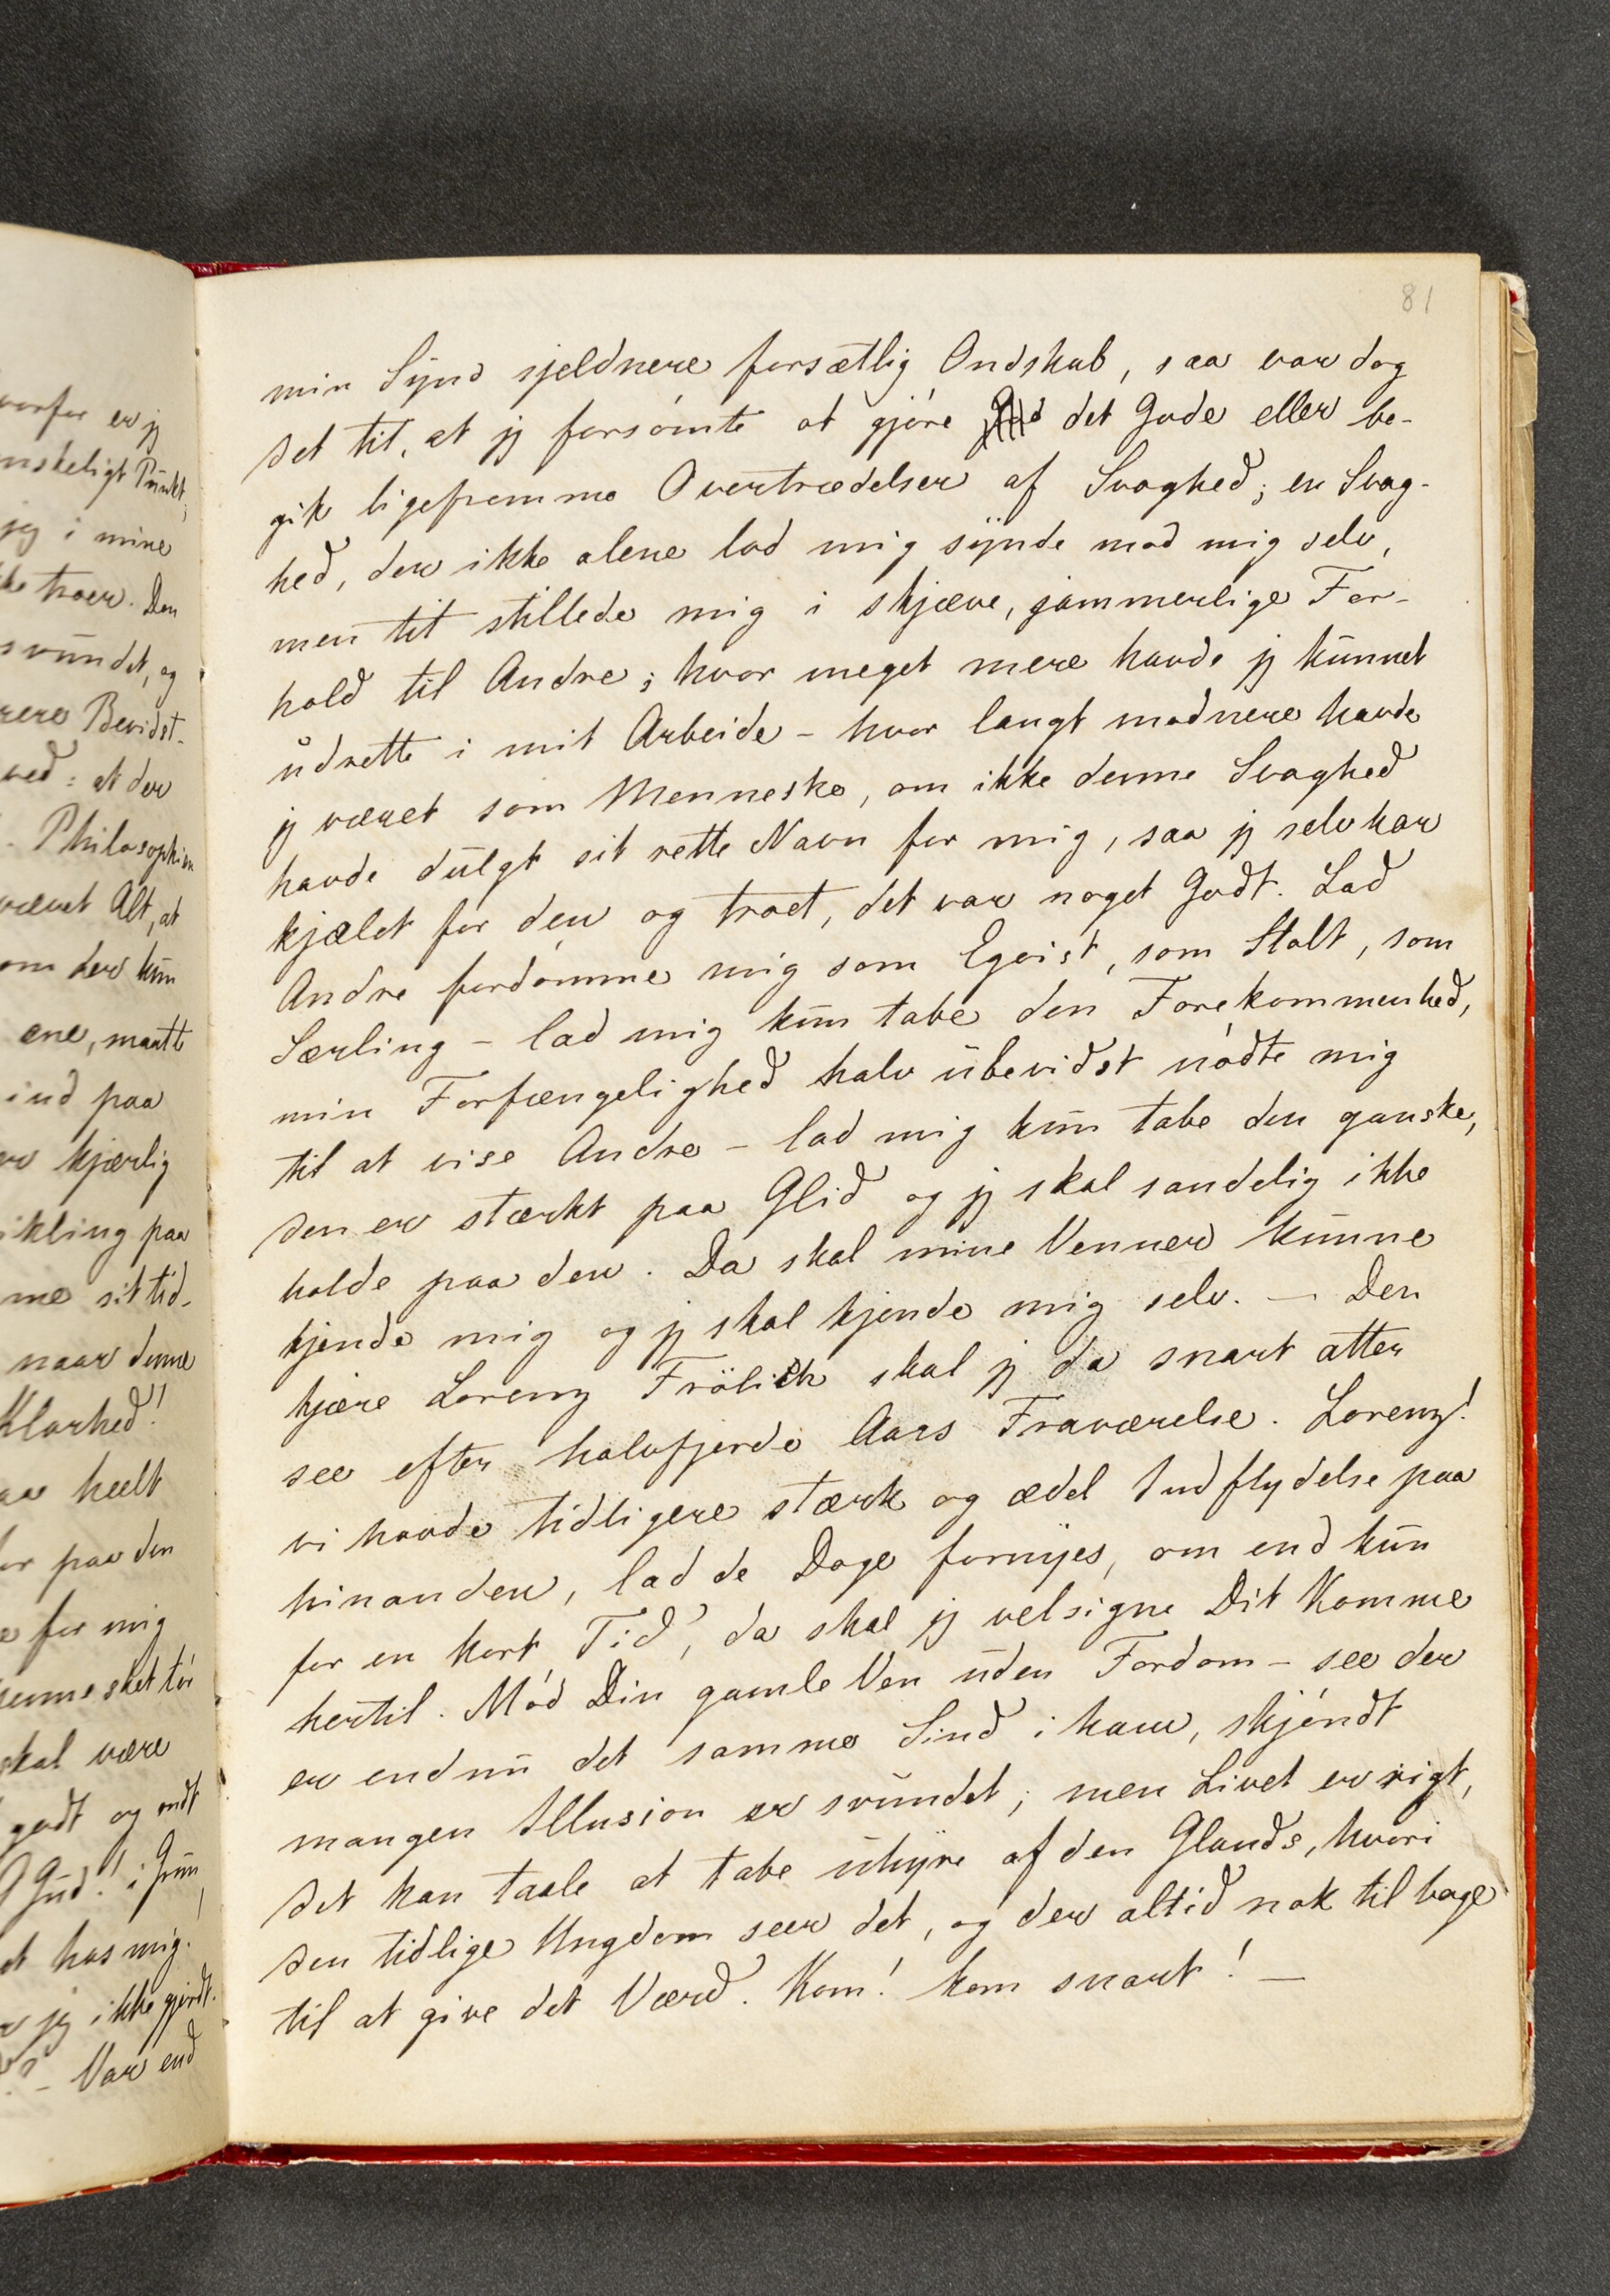 81
min Synd sjeldnere forsætlig Ondskab, saa var dog
det tit, at jeg forsømte at gjøre det Gode eller be-
gik ligefremme Overtrædelser af Svaghed; en Svag-
hed, der ikke alene lod mig synde mod mig selv,
men tit stillede mig i skjæve, jammerlige For-
hold til Andre; hvor meget mere havde jeg kunnet
udrette i mit Arbeide – hvor langt modnere havde
jeg været som Menneske, om ikke denne Svaghed
havde dulgt sit rette Navn for mig, saa jeg selv har
kjælet for den og troet, det var noget Godt. Lad
Andre fordømme mig som Egoist, som Stolt, som
Særling – lad mig kun tabe den Forekommenhed,
min Forfængelighed halv ubevidst nødte mig
til at vise Andre – lad mig kun tabe den ganske,
den er stærkt paa Glid og jeg skal sandelig ikke
holde paa den. Da skal mine Venner kunne
kjende mig og jeg skal kjende mig selv. – Den
kjære Lorenz Frölich skal jeg da snart atter
see efter halvfjerde Aars Fraværelse. Lorenz!
vi havde tidligere stærk og ædel Indflydelse paa
hinanden, lad de Dage fornyes, om end kun
for en kort Tid, da skal jeg velsigne Dit Komme
hertil. Mød Din gamle Ven uden Fordom – see der
er endnu det samme Sind i ham, skjøndt
mangen Illusion er svundet; men Livet er rigt,
det kan taale at tabe uhyre af den Glands, hvori
den tidlige Ungdom seer det, og der altid nok tilbage
til at give det Værd. Kom! kom snart! –
vorfor er jeg
nskeligt Punkt;
jeg i mine
ke troer. Den
svundet, og
rere Bevidst-
ved: at der
Philosophien
været Alt, at
om der kun
ene, maatte
ind paa
er kjærlig
ikling paa
me sit tid-
naar denne
Klarhed!
aa heelt
or paa den
e for mig
skal være
godt og ondt
Gud! i Grun
et hos mig.
jeg ikke gjordt.
– Var end